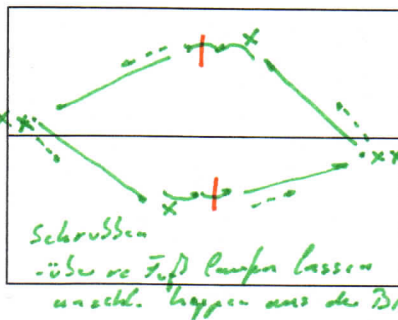 x
x x
x x
x
Schrubben
-über re Fuß laufen lassen
anschl. happen aus der